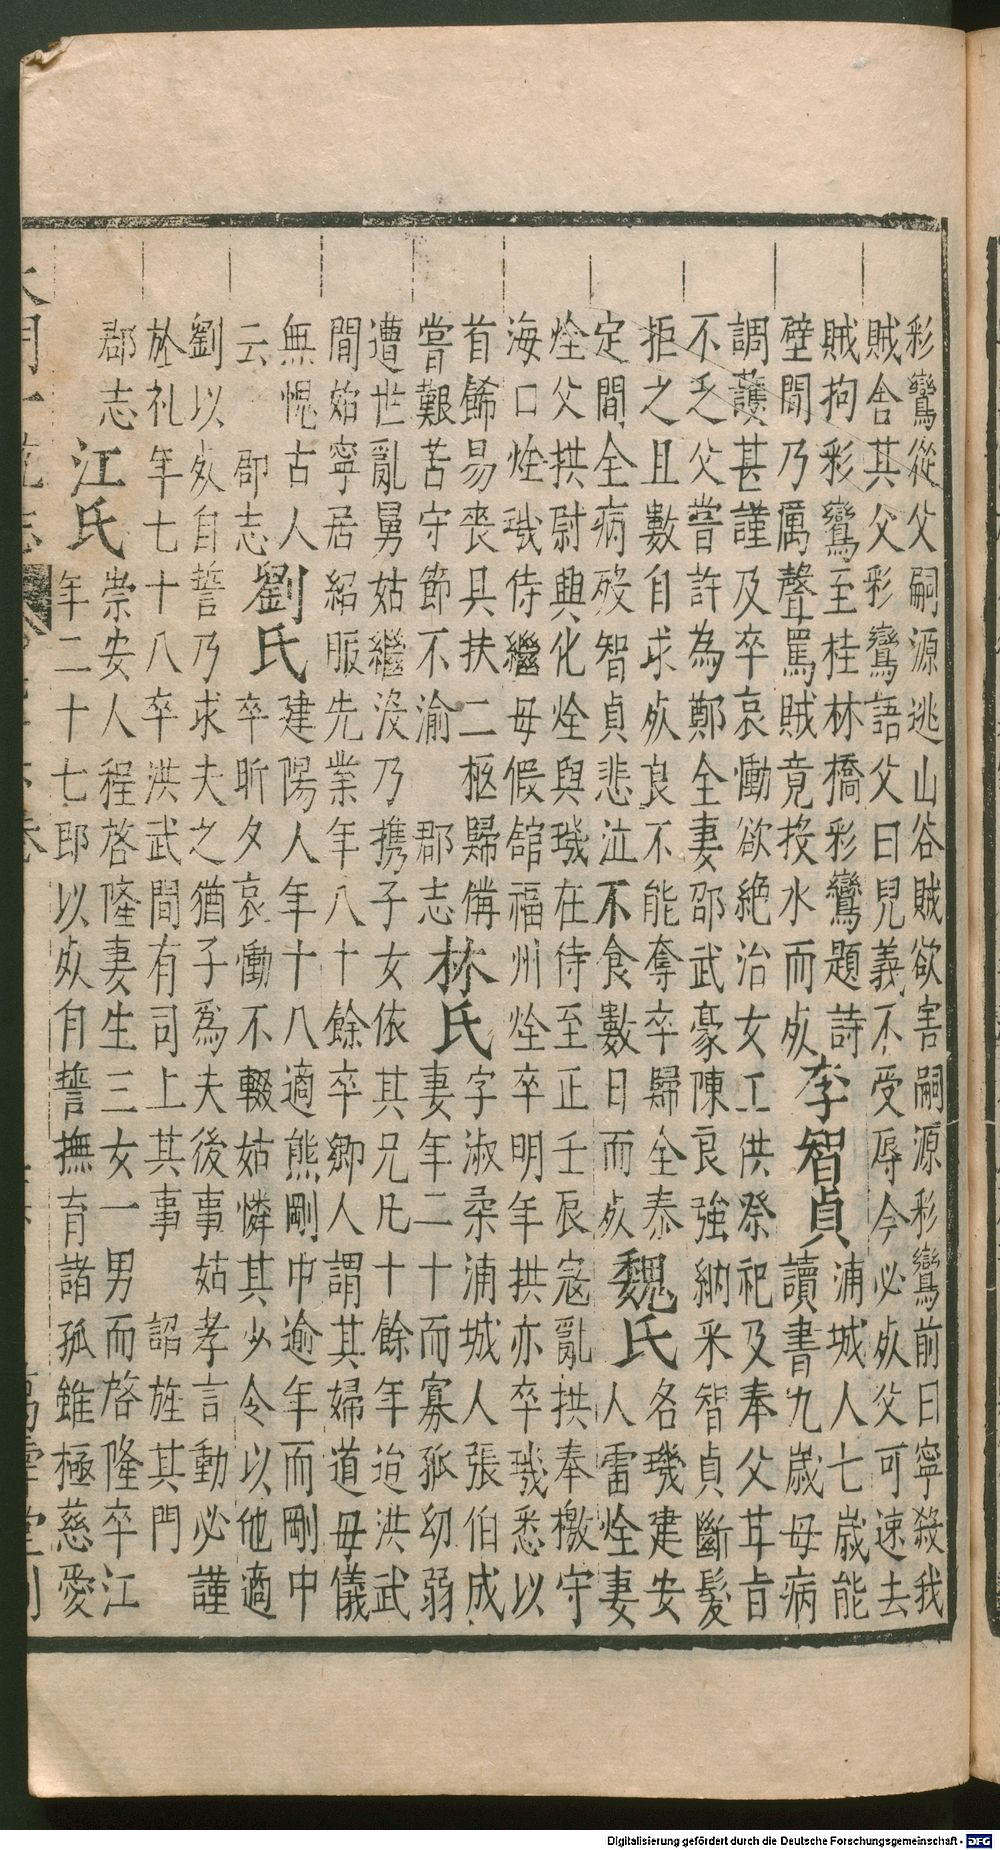 彩鸞從父嗣源逃山谷賊欲害嗣源彩鸞前曰寧殺我
賊舍其父彩鸞語父曰兒義不受辱今必死父可速去
賊拘彩鸞至桂林橋彩鸞題詩
壁間乃厲聲罵賊竟投水而死
李智貞
浦城人七歲能
讀書九歲母病
調護甚謹及卒哀慟欲絶治女工供祭祀及奉父甘旨
不乏父嘗許為鄭全妻邵武豪陳良強納采智貞斷髮
拒之且數自求死良不能奪卒歸全泰
定間全病歿智貞悲泣不食數日而死
魏氏
名璣建安
人雷烇妻
烇父拱尉興化烇與璣在侍至正壬辰寇亂拱奉檄守
海口烇璣侍繼母假館福州烇卒明年拱亦卒璣悉以
首飾易喪具扶二柩歸備
嘗艱苦守節不渝 郡志
林氏
字淑柔浦城人張伯成
妻年二十而寡孤幼弱
遭世亂舅姑繼沒乃携子女依其兄凡十餘年迨洪武
間始寧居紹服先業年八十餘卒鄉人謂其婦道母儀
無愧古人
云 郡志
劉氏
建陽人年十八適熊剛中逾年而剛中
卒昕夕哀慟不輟姑憐其少令以他適
劉以死自誓乃求夫之猶子爲夫後事姑孝言動必謹
於礼年七十八卒洪武間有司上其事 詔旌其門
郡志
江氏
崇安人程啓隆妻生三女一男而啓隆卒江
年二十七即以死自誓撫育諸孤雖極慈愛
Digitalisierung gefördert durch die Deutsche Forschungsgemeinschaft - DFG